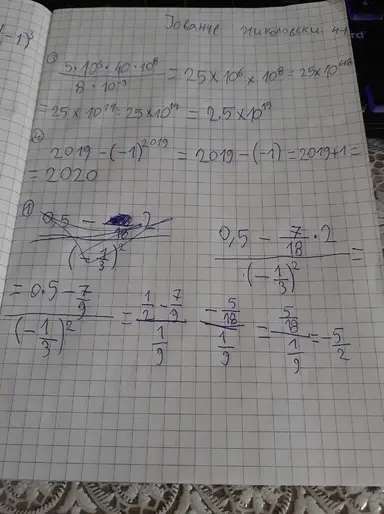 (-1)³
Јованче Николовски 4-1
③
5·10³·40·10⁸ / 8·10⁻³ = 25×10⁶ × 10⁸ = 25×10⁶⁺⁸
= 25×10¹⁴ = 25×10¹⁴ = 2.5×10¹⁵
④
2019-(-1)²⁰¹⁹ = 2019-(-1) = 2019+1 =
= 2020
①
0,5 - 7/18 · 2 / (-1/3)² =
= 0.5 - 7/9 / (-1/3)² = 1/2 - 7/9 / 1/9 - 5/18 / 1/9 = 5/18 / 1/9 = -5/2